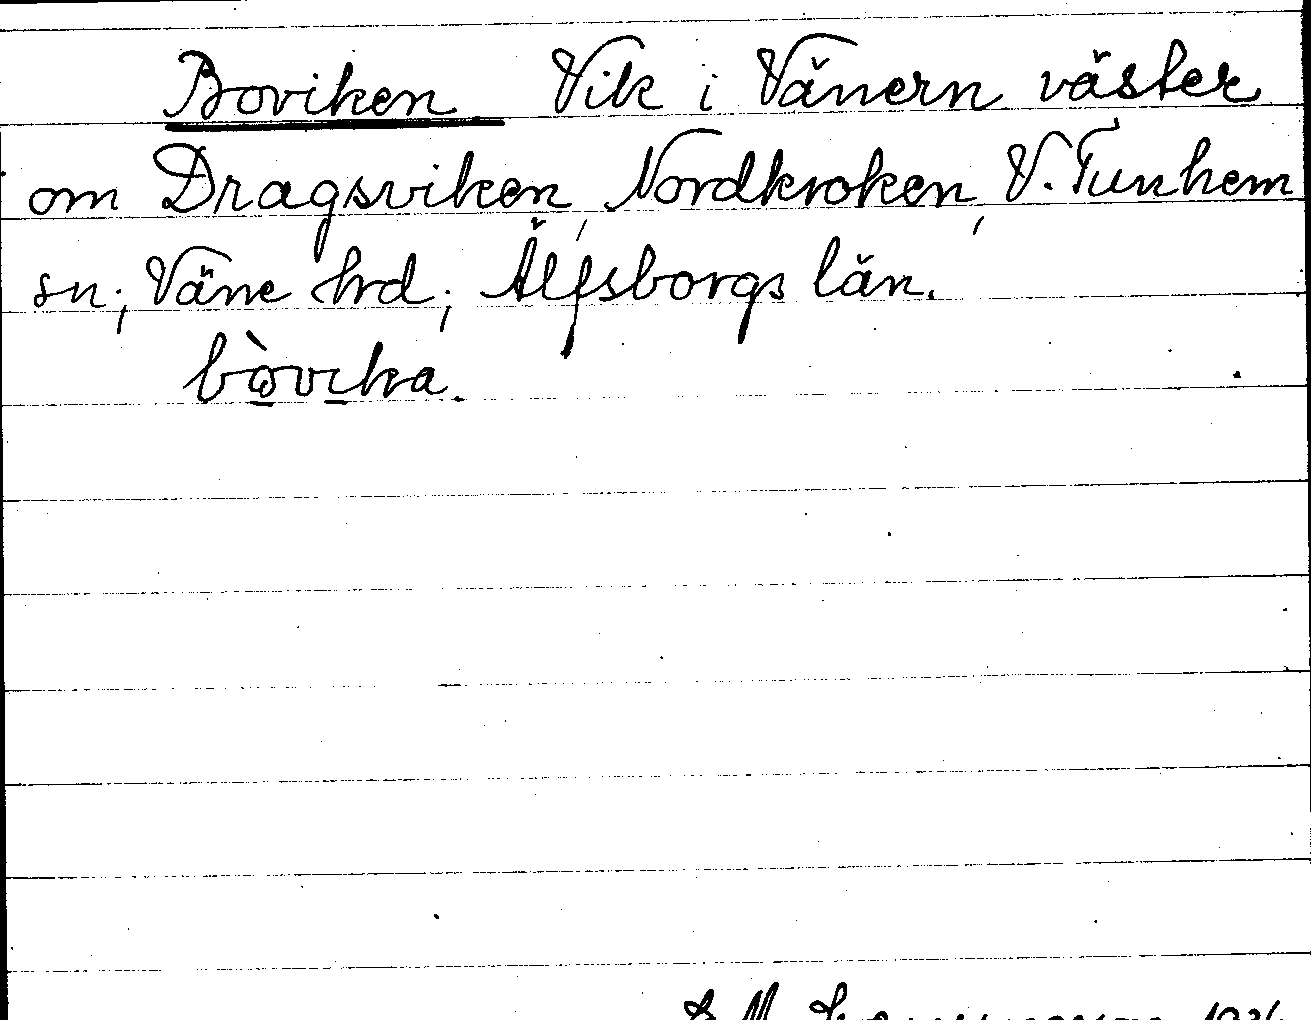 Boviken Vik i Vänern väster
om Dragsviken, Nordkroken, V. Tunhem
sn; Väne hrd; Älfsborgs län.
bòvika.